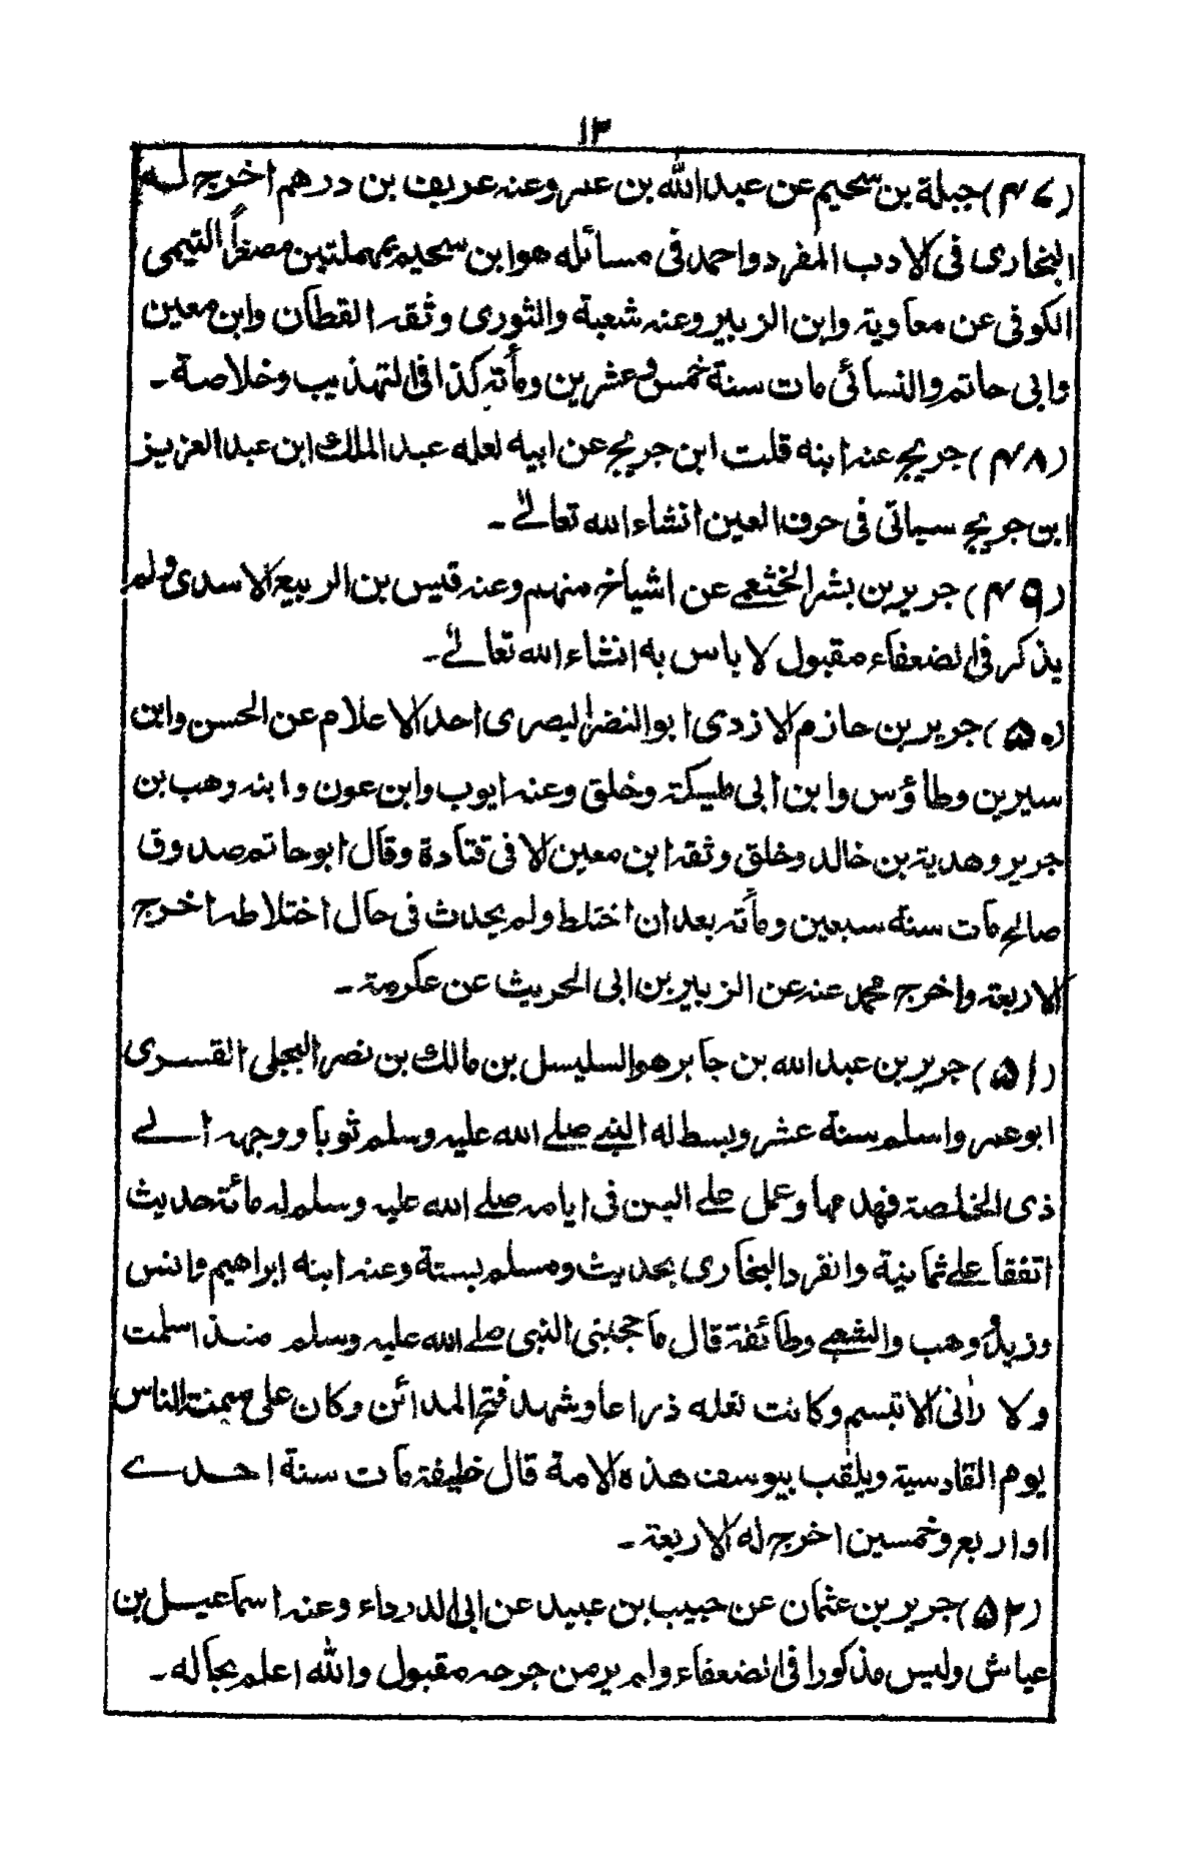 ١٣
(٤٧) جبلة بن سحيم عن عبد الله بن عمر وعنه عريف بن درهم اخرج له
البخارى فى الادب المفرد واحمد فى مسائله هو ابن سحيم بمهملتين مصغراً التيمى
الكوفى عن معاوية وابن الزبير وعنه شعبة والثورى وثقه القطان وابن معين
وابى حاتم والنسائى مات سنة خمس وعشرين ومأته كذا فى التهذيب وخلاصة۔
(٤٨) جريج عنه ابنه قلت ابن جريج عن ابيه لعله عبد الملك ابن عبد العزيز
ابن جريج سياتى فى حرف العين انشاء الله تعالےٰ۔
(٤٩) جرير بن بشر الخثعمے عن اشياخ منهم وعنه قيس بن الربيع الاسدى ولم
يذكر فى الضعفاء مقبول لا باس به انشاء الله تعالےٰ۔
(٥٠) جرير بن حازم الازدى ابو النضر البصرى احد الاعلام عن الحسن وابن
سيرين وطاؤس وابن ابى مليكة وخلق وعنه ايوب وابن عون وابنه وهب بن
جرير وهدية بن خالد وخلق وثقه ابن معين لا فى قتادة وقال ابو حاتم صدوق
صالح مات سنة سبعين ومأته بعد ان اختلط ولم يحدث فى حال اختلاطه اخرج
الاربعة واخرج محمد عنه عن الزبير بن ابى الحريث عن عكرمة۔
(٥١) جرير بن عبد الله بن جابر هو السليسل بن مالك بن نصر البجلى القسرى
ابو عمر واسلم سنة عشر وبسط له النبے صلے الله عليه وسلم ثوبا ووجهه الے
ذى الخلصة فهدمها وعمل علے اليمن فى ايامه صلے الله عليه وسلم له مائة حديث
اتفقا علے ثمانية وانفرد البخارى بحديث ومسلم بستة وعنه ابنه ابراهيم وانس
وزيد وهب والشعبے وطائفة قال ما حجبنى النبى صلے الله عليه وسلم منذ اسلمت
ولا رانى الا تبسم وكانت نعله ذراعا وشهد فتح المدائن وكان على ميمنة الناس
يوم القادسية ويلقب بيوسف هذه الامة قال خليفة مات سنة احدے
او اربع وخمسين اخرج له الاربعة۔
(٥٢) جرير بن عثمان عن حبيب بن عبيد عن ابى الدرداء وعنه اسماعيل بن
عياش وليس مذكورا فى الضعفاء ولم ير من جرحه مقبول والله اعلم بحاله۔